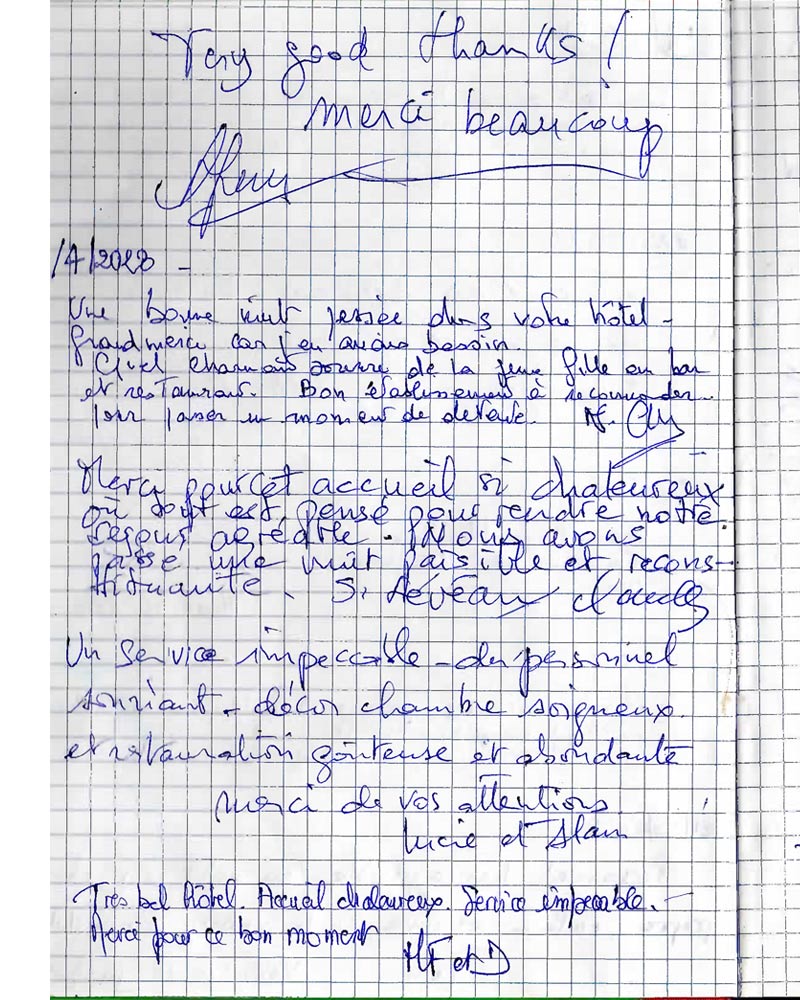 Very good thanks !
merci beaucoup
/4/2023 -
Une bonne nuit passée dans votre hôtel -
Grand merci car j'en avais besoin.
Quel charmant sourire de la jeune fille au bar
et restaurant. Bon établissement à recommander
pour passer un moment de détente.
Merci pour cet accueil si chaleureux
où tout est pensé pour rendre notre
séjour agréable. Nous avons
passé une nuit paisible et recons-
tituante. S.
Un service impeccable - du personnel
souriant - décor chambre soigneux
et restauration goûteuse et abondante
merci de vos attentions
Lucie et Alain
Très bel hôtel. Accueil chaleureux. Service impecable. -
Merci pour ce bon moment
MF et D